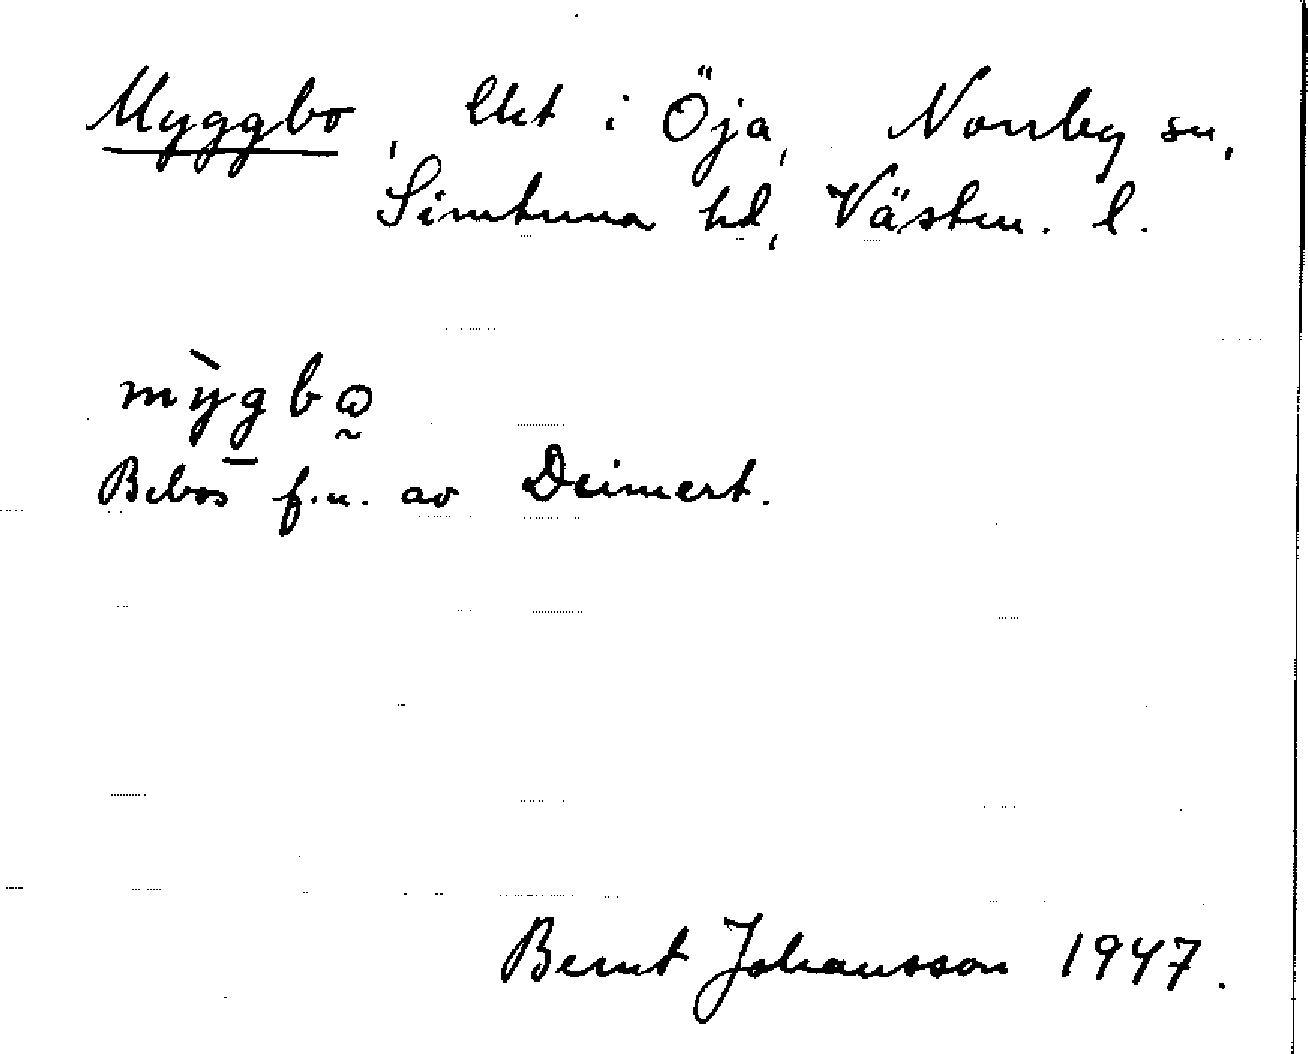 Myggbo, lht i Öja, Norrby sn,
Simtuna hd, Västm. l.
mỳgbω
Bebos f.n. av Deimert.
Bernt Johansson 1947.